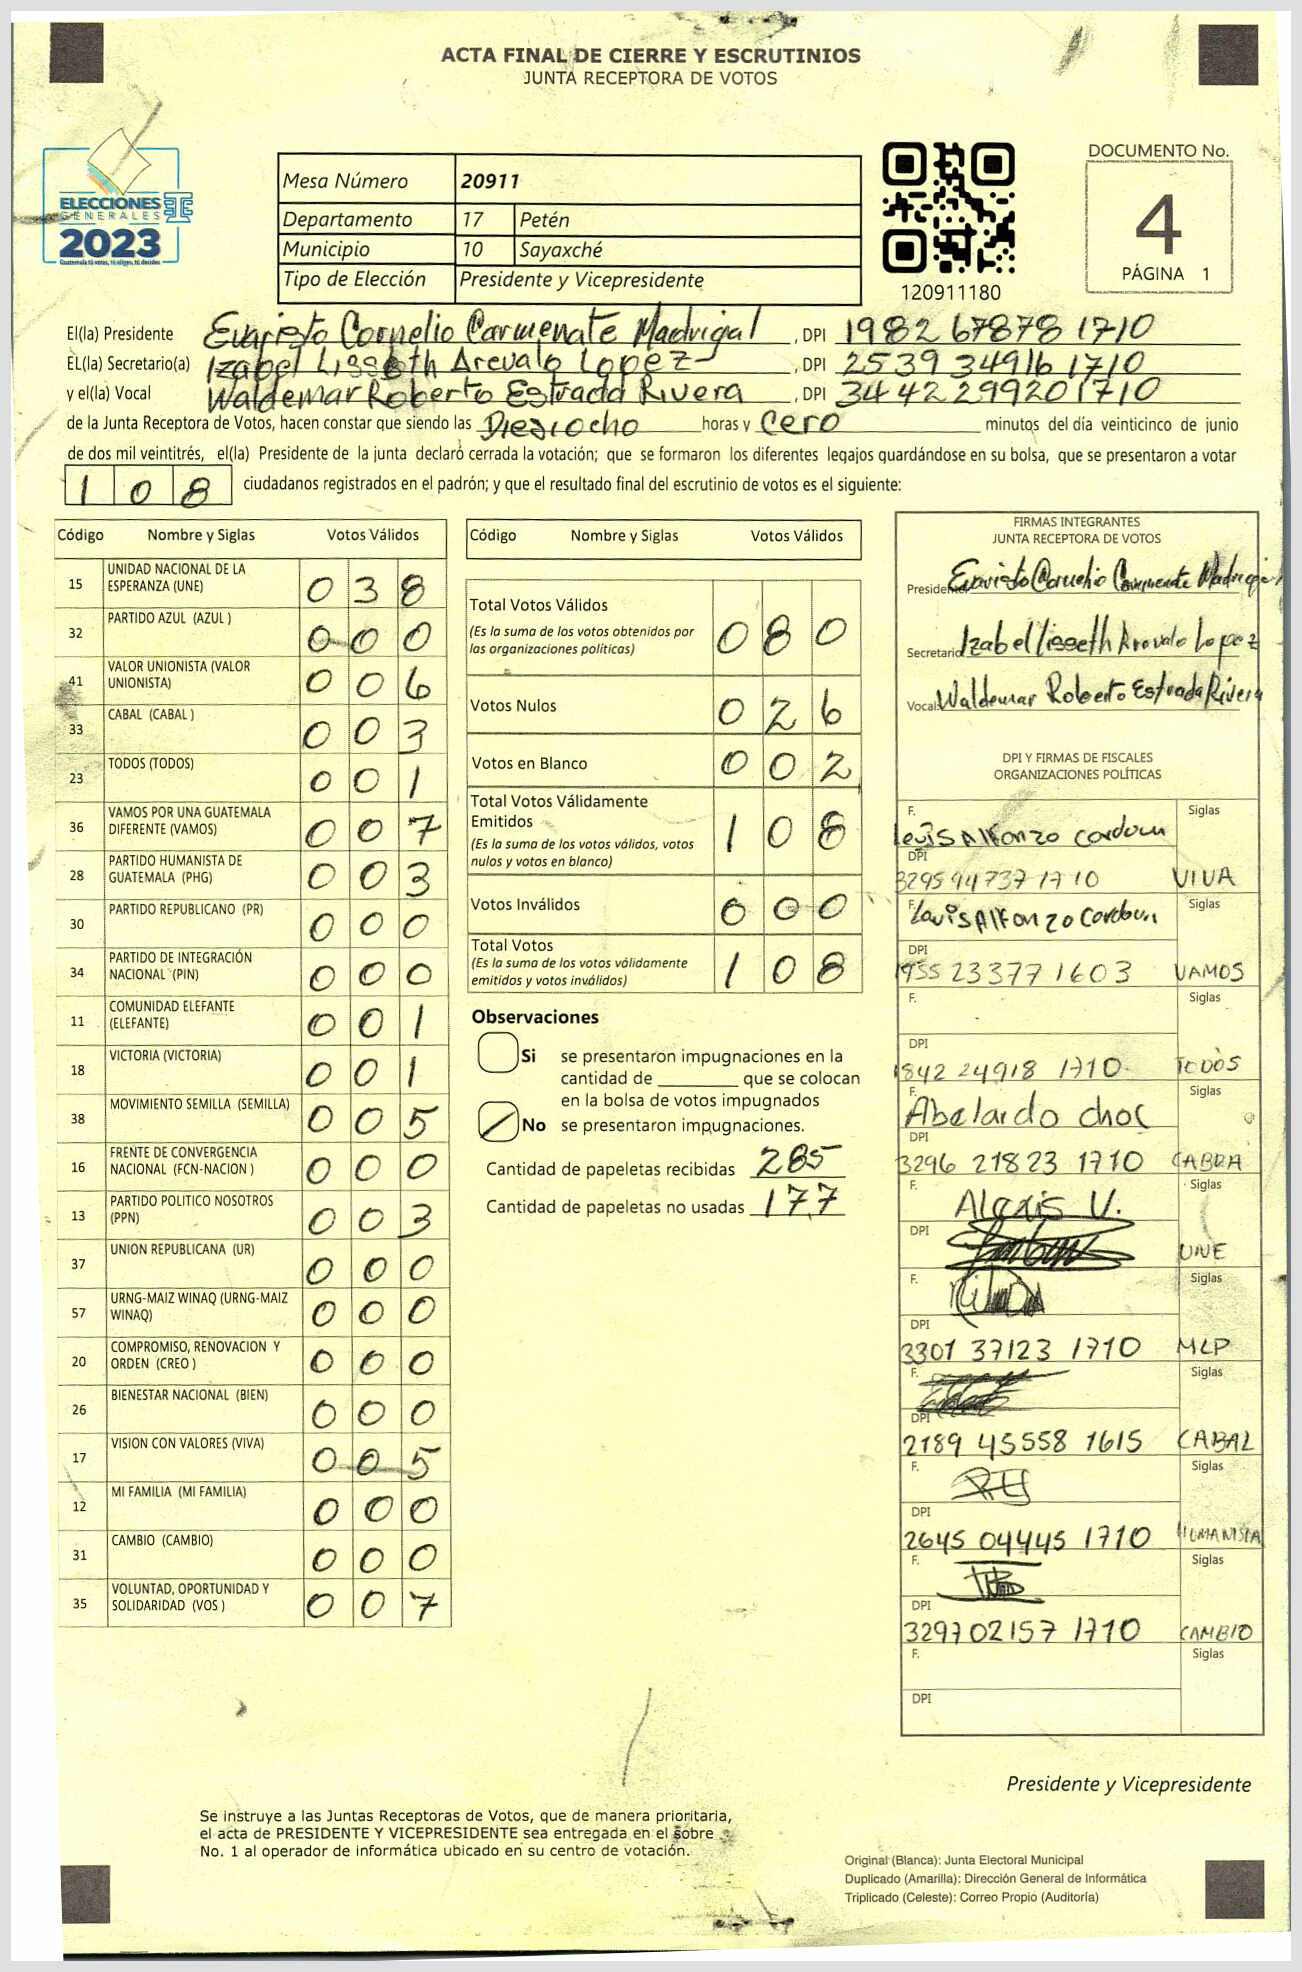 ACTA FINAL DE CIERRE Y ESCRUTINIOS
JUNTA RECEPTORA DE VOTOS
ELECCIONES
GENERALES
2023
Guatemala tú votas, tú eliges, tú decides
Mesa Número 20911
Departamento 17 Petén
Municipio 10 Sayaxché
Tipo de Elección Presidente y Vicepresidente
120911180
DOCUMENTO No.
4
PÁGINA 1
El(la) Presidente Evaristo Cornelio Carmenate Madrigal , DPI 1982 67878 1710
EL(la) Secretario(a) Izabel Lisseth Arevalo Lopez , DPI 2539 34916 1710
y el(la) Vocal Waldemar Roberto Estrada Rivera , DPI 3442 29920 1710
de la Junta Receptora de Votos, hacen constar que siendo las Dieciocho horas y Cero minutos del día veinticinco de junio
de dos mil veintitrés, el(la) Presidente de la junta declaró cerrada la votación; que se formaron los diferentes legajos guardándose en su bolsa, que se presentaron a votar
108 ciudadanos registrados en el padrón; y que el resultado final del escrutinio de votos es el siguiente:
Código Nombre y Siglas Votos Válidos
15 UNIDAD NACIONAL DE LA
ESPERANZA (UNE) 038
32 PARTIDO AZUL (AZUL ) 000
41 VALOR UNIONISTA (VALOR
UNIONISTA) 006
33 CABAL (CABAL ) 003
23 TODOS (TODOS) 001
36 VAMOS POR UNA GUATEMALA
DIFERENTE (VAMOS) 007
28 PARTIDO HUMANISTA DE
GUATEMALA (PHG) 003
30 PARTIDO REPUBLICANO (PR) 000
34 PARTIDO DE INTEGRACIÓN
NACIONAL (PIN) 000
11 COMUNIDAD ELEFANTE
(ELEFANTE) 001
18 VICTORIA (VICTORIA) 001
38 MOVIMIENTO SEMILLA (SEMILLA) 005
16 FRENTE DE CONVERGENCIA
NACIONAL (FCN-NACION ) 000
13 PARTIDO POLITICO NOSOTROS
(PPN) 003
37 UNION REPUBLICANA (UR) 000
57 URNG-MAIZ WINAQ (URNG-MAIZ
WINAQ) 000
20 COMPROMISO, RENOVACION Y
ORDEN (CREO ) 000
26 BIENESTAR NACIONAL (BIEN) 000
17 VISION CON VALORES (VIVA) 005
12 MI FAMILIA (MI FAMILIA) 000
31 CAMBIO (CAMBIO) 000
35 VOLUNTAD, OPORTUNIDAD Y
SOLIDARIDAD (VOS ) 007
Código Nombre y Siglas Votos Válidos
Total Votos Válidos 080
(Es la suma de los votos obtenidos por
las organizaciones políticas)
Votos Nulos 026
Votos en Blanco 002
Total Votos Válidamente
Emitidos 108
(Es la suma de los votos válidos, votos
nulos y votos en blanco)
Votos Inválidos 000
Total Votos 108
(Es la suma de los votos válidamente
emitidos y votos inválidos)
Observaciones
Si se presentaron impugnaciones en la
cantidad de ________ que se colocan
en la bolsa de votos impugnados
No se presentaron impugnaciones.
Cantidad de papeletas recibidas 285
Cantidad de papeletas no usadas 177
FIRMAS INTEGRANTES
JUNTA RECEPTORA DE VOTOS
Presidente Evaristo Cornelio Carmenate Madrigal
Secretario Izabel Lisseth Arevalo Lopez
Vocal Waldemar Roberto Estrada Rivera
DPI Y FIRMAS DE FISCALES
ORGANIZACIONES POLÍTICAS
F. Siglas
Levis Alfonzo Cordova
DPI
3295 94737 1710 VIVA
F. Siglas
Levis Alfonzo Cordova
DPI
1955 23377 1603 VAMOS
F. Siglas
DPI
1842 24918 1710 TODOS
F. Siglas
Abelardo choc
DPI
3296 21823 1710
F. Siglas
Alexis V.
DPI
UNE
F. Siglas
DPI
3301 37123 1710 MLP
F. Siglas
DPI
2189 45558 1615 CABAL
F. Siglas
DPI
2645 04445 1710 HUMANISTA
F. Siglas
DPI
3297 02157 1710 CAMBIO
F. Siglas
DPI
Presidente y Vicepresidente
Se instruye a las Juntas Receptoras de Votos, que de manera prioritaria,
el acta de PRESIDENTE Y VICEPRESIDENTE sea entregada en el sobre
No. 1 al operador de informática ubicado en su centro de votación.
Original (Blanca): Junta Electoral Municipal
Duplicado (Amarilla): Dirección General de Informática
Triplicado (Celeste): Correo Propio (Auditoría)